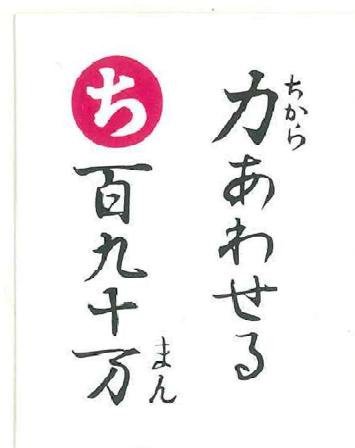 力あわせる
ちから
ち
百九十万
まん